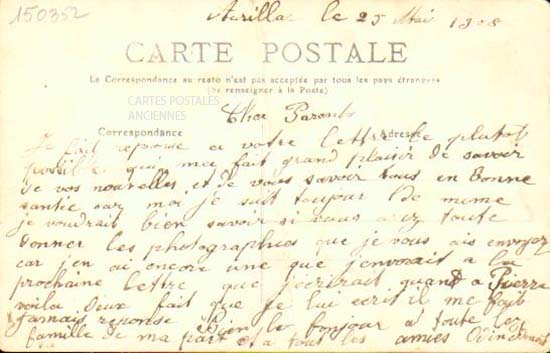 150352
Aurillac le 25 Mai 1908
CARTE POSTALE
La Correspondance au recto n'est pas acceptée par tous les pays étrangers
(Se renseigner à la Poste)
CARTES POSTALES
ANCIENNES
Cher Parents
Correspondance
Adresse
Je fait reponse a votre lettre le plutot
possible qui ma fait grand plaisir de savoir
de vos nouvelles et de vous savoir tous en bonne
santée car moi je suit toujour de meme
je voudrait bien savoir si vous avez toute
donner les photographies que je vous ais envoyez
car j'en ai encore une que j'envoirait a la
prochaine lettre que j'ecrirait quand a Pierre
voila deux fait que je lui ecrit il me fait
jamais reponse Bien le bonjour a toute la
famille de ma part et a tout les amies